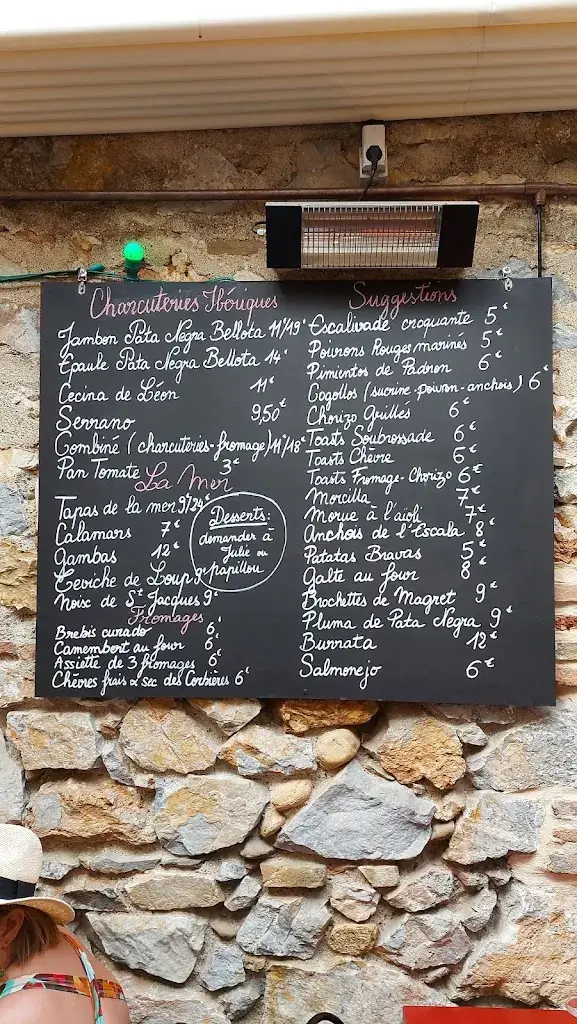 Charcuteries Ibériques
Jambon Pata Negra Bellota 11/19€
Épaule Pata Negra Bellota 14€
Cecina de Léon 11€
Serrano 9,50€
Combiné (charcuteries-fromage) 11€/18€
Pan Tomate 3€
La Mer
Tapas de la mer 9/24€
Calamars 7€
Gambas 12€
Ceviche de Loup 9€
Noix de St Jacques 9€
Desserts:
demander à
Julie ou
papillou
Fromages
Brebis curado 6€
Camembert au four 6€
Assiette de 3 fromages 6€
Chèvres frais & sec des Corbières 6€
Suggestions
Escalivade croquante 5€
Poivrons Rouges marinés 5€
Pimientos de Padron 6€
Cogollos (sucrine-poivron-anchois) 6€
Chorizo Grillés 6€
Toasts Soubressade 6€
Toasts Chèvre 6€
Toasts Fromage-Chorizo 6€
Morcilla 7€
Morue à l'aïoli 7€
Anchois de l'Escala 8€
Patatas Bravas 5€
Galte au four 8€
Brochettes de Magret 9€
Pluma de Pata Negra 9€
Burrata 12€
Salmorejo 6€